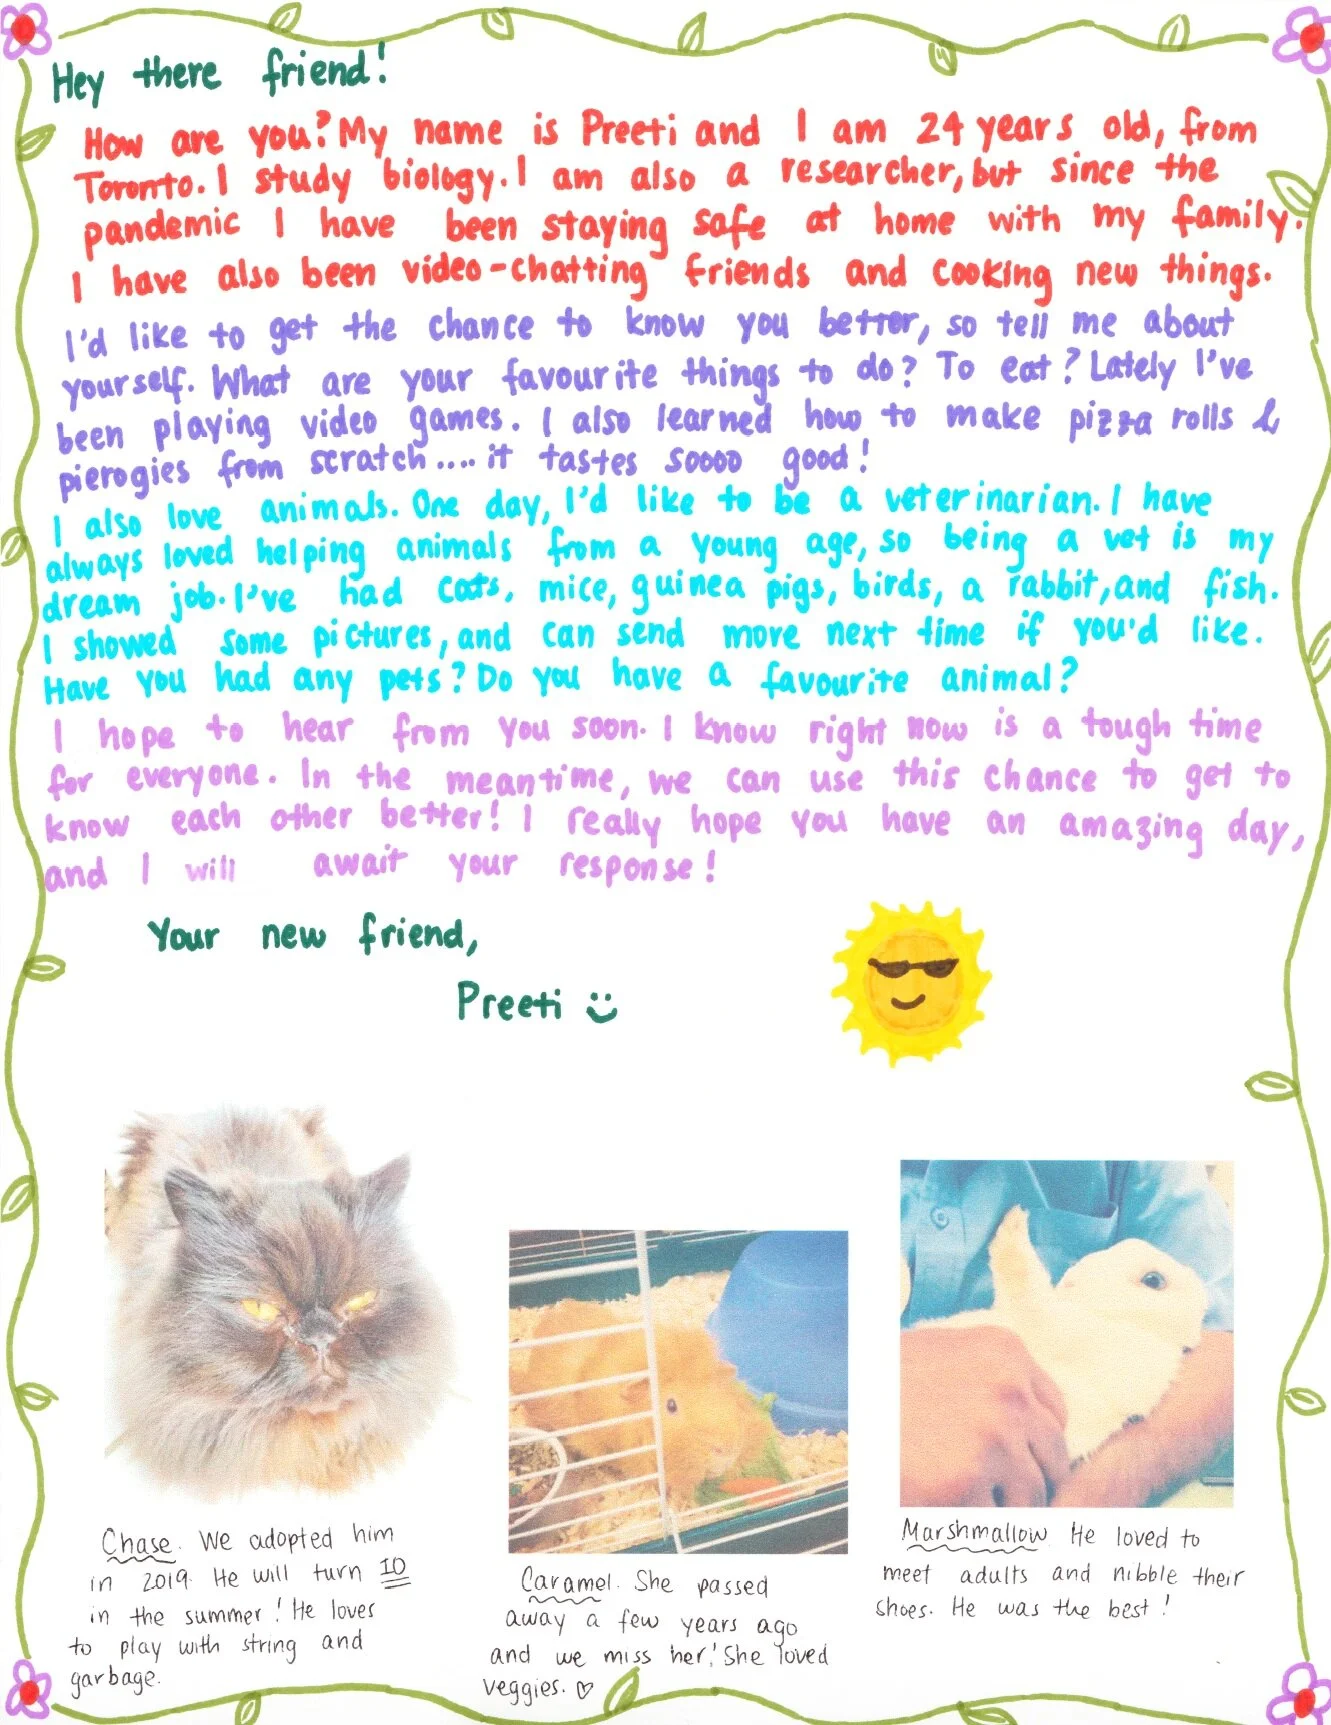 Hey there friend!
How are you? My name is Preeti and I am 24 years old, from
Toronto. I study biology. I am also a researcher, but since the
pandemic I have been staying safe at home with my family.
I have also been video-chatting friends and cooking new things.
I'd like to get the chance to know you better, so tell me about
yourself. What are your favourite things to do? To eat? Lately I've
been playing video games. I also learned how to make pizza rolls &
pierogies from scratch.... it tastes soooo good!
I also love animals. One day, I'd like to be a veterinarian. I have
always loved helping animals from a young age, so being a vet is my
dream job. I've had cats, mice, guinea pigs, birds, a rabbit, and fish.
I showed some pictures, and can send more next time if you'd like.
Have you had any pets? Do you have a favourite animal?
I hope to hear from you soon. I know right now is a tough time
for everyone. In the meantime, we can use this chance to get to
know each other better! I really hope you have an amazing day,
and I will await your response!
Your new friend,
Preeti
Chase. We adopted him
in 2019. He will turn 10
in the summer! He loves
to play with string and
garbage.
Caramel. She passed
away a few years ago
and we miss her! She loved
veggies. ♡
Marshmallow. He loved to
meet adults and nibble their
shoes. He was the best!